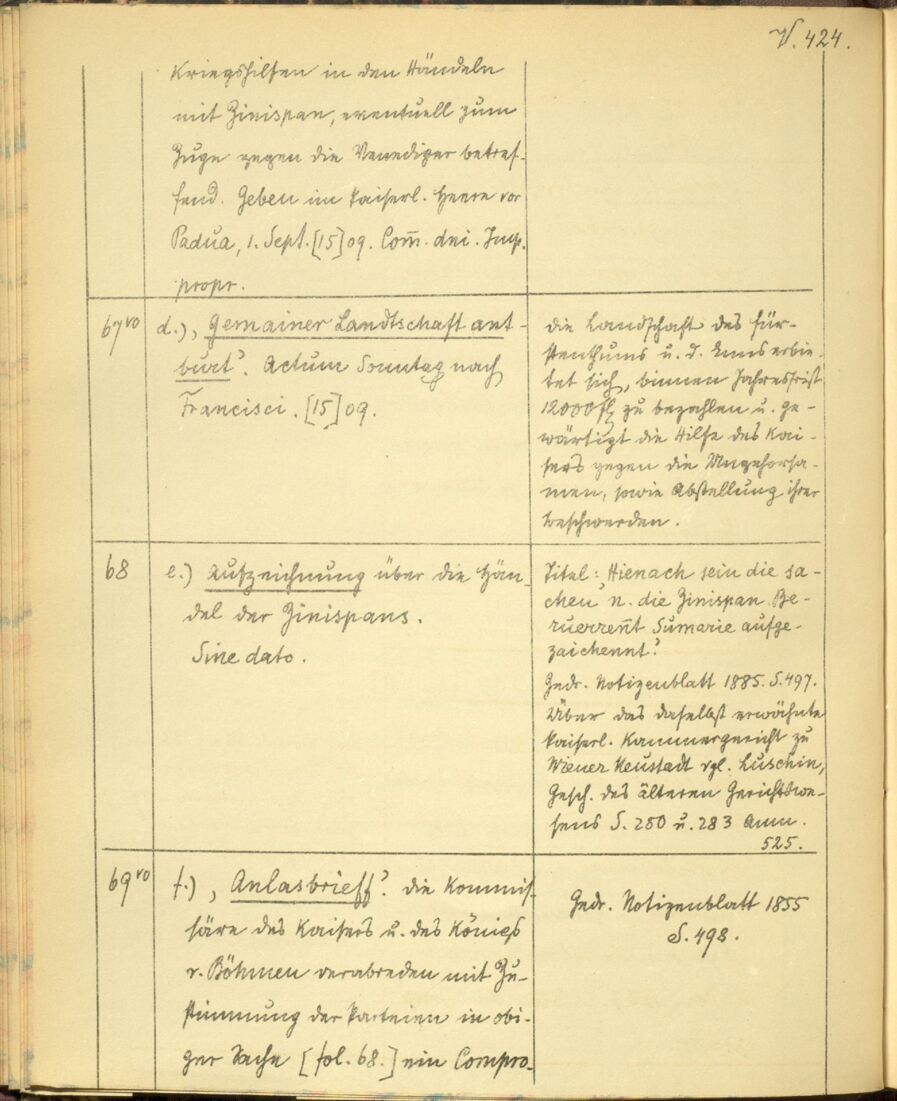 V. 424.
Kriegshilfen in den Händeln
mit Zinispan, eventuell zum
Zuge gegen die Venediger betref-
fend. Geben im kaiserl. Heere vor
Padua, 1. Sept. [15]09. Com̄. dni. Imp.
propr.
67vo
d.) ‚Gemainer Landtschaft ant-
burt‘. Actum Sonntag nach
Francisci. [15]09.
Die Landschaft des für-
stenthums u. d. Enns erbie-
tet sich, binnen Jahresfrist
12000 fl. zu bezahlen u. ge-
wärtigt die Hilfe des Kai-
sers gegen die Ungehorsa-
men, sowie Abstellung ihrer
Beschwerden.
68
e.) Aufzeichnung über die Hän-
del der Zinispans.
Sine dato.
Titel: ‚Hienach sein die sa-
chen n. die Zinispan Be-
ruerrent Sumarie aufge-
zaichennt‘.
Gedr. Notizenblatt 1885. S. 497.
Über das daselbst erwähnte
kaiserl. Kammergericht zu
Wiener Neustadt vgl. Luschin,
Gesch. des älteren Gerichtswe-
sens S. 280 u. 283 Anm.
525.
69vo
f.) ‚Anlasbrieff‘. Die Kommis-
säre des Kaisers u. des Königs
v. Böhmen verabreden mit Zu-
stimmung der Parteien in obi-
ger Sache [fol. 68.] ein Compro-
Gedr. Notizenblatt 1855
S. 498.